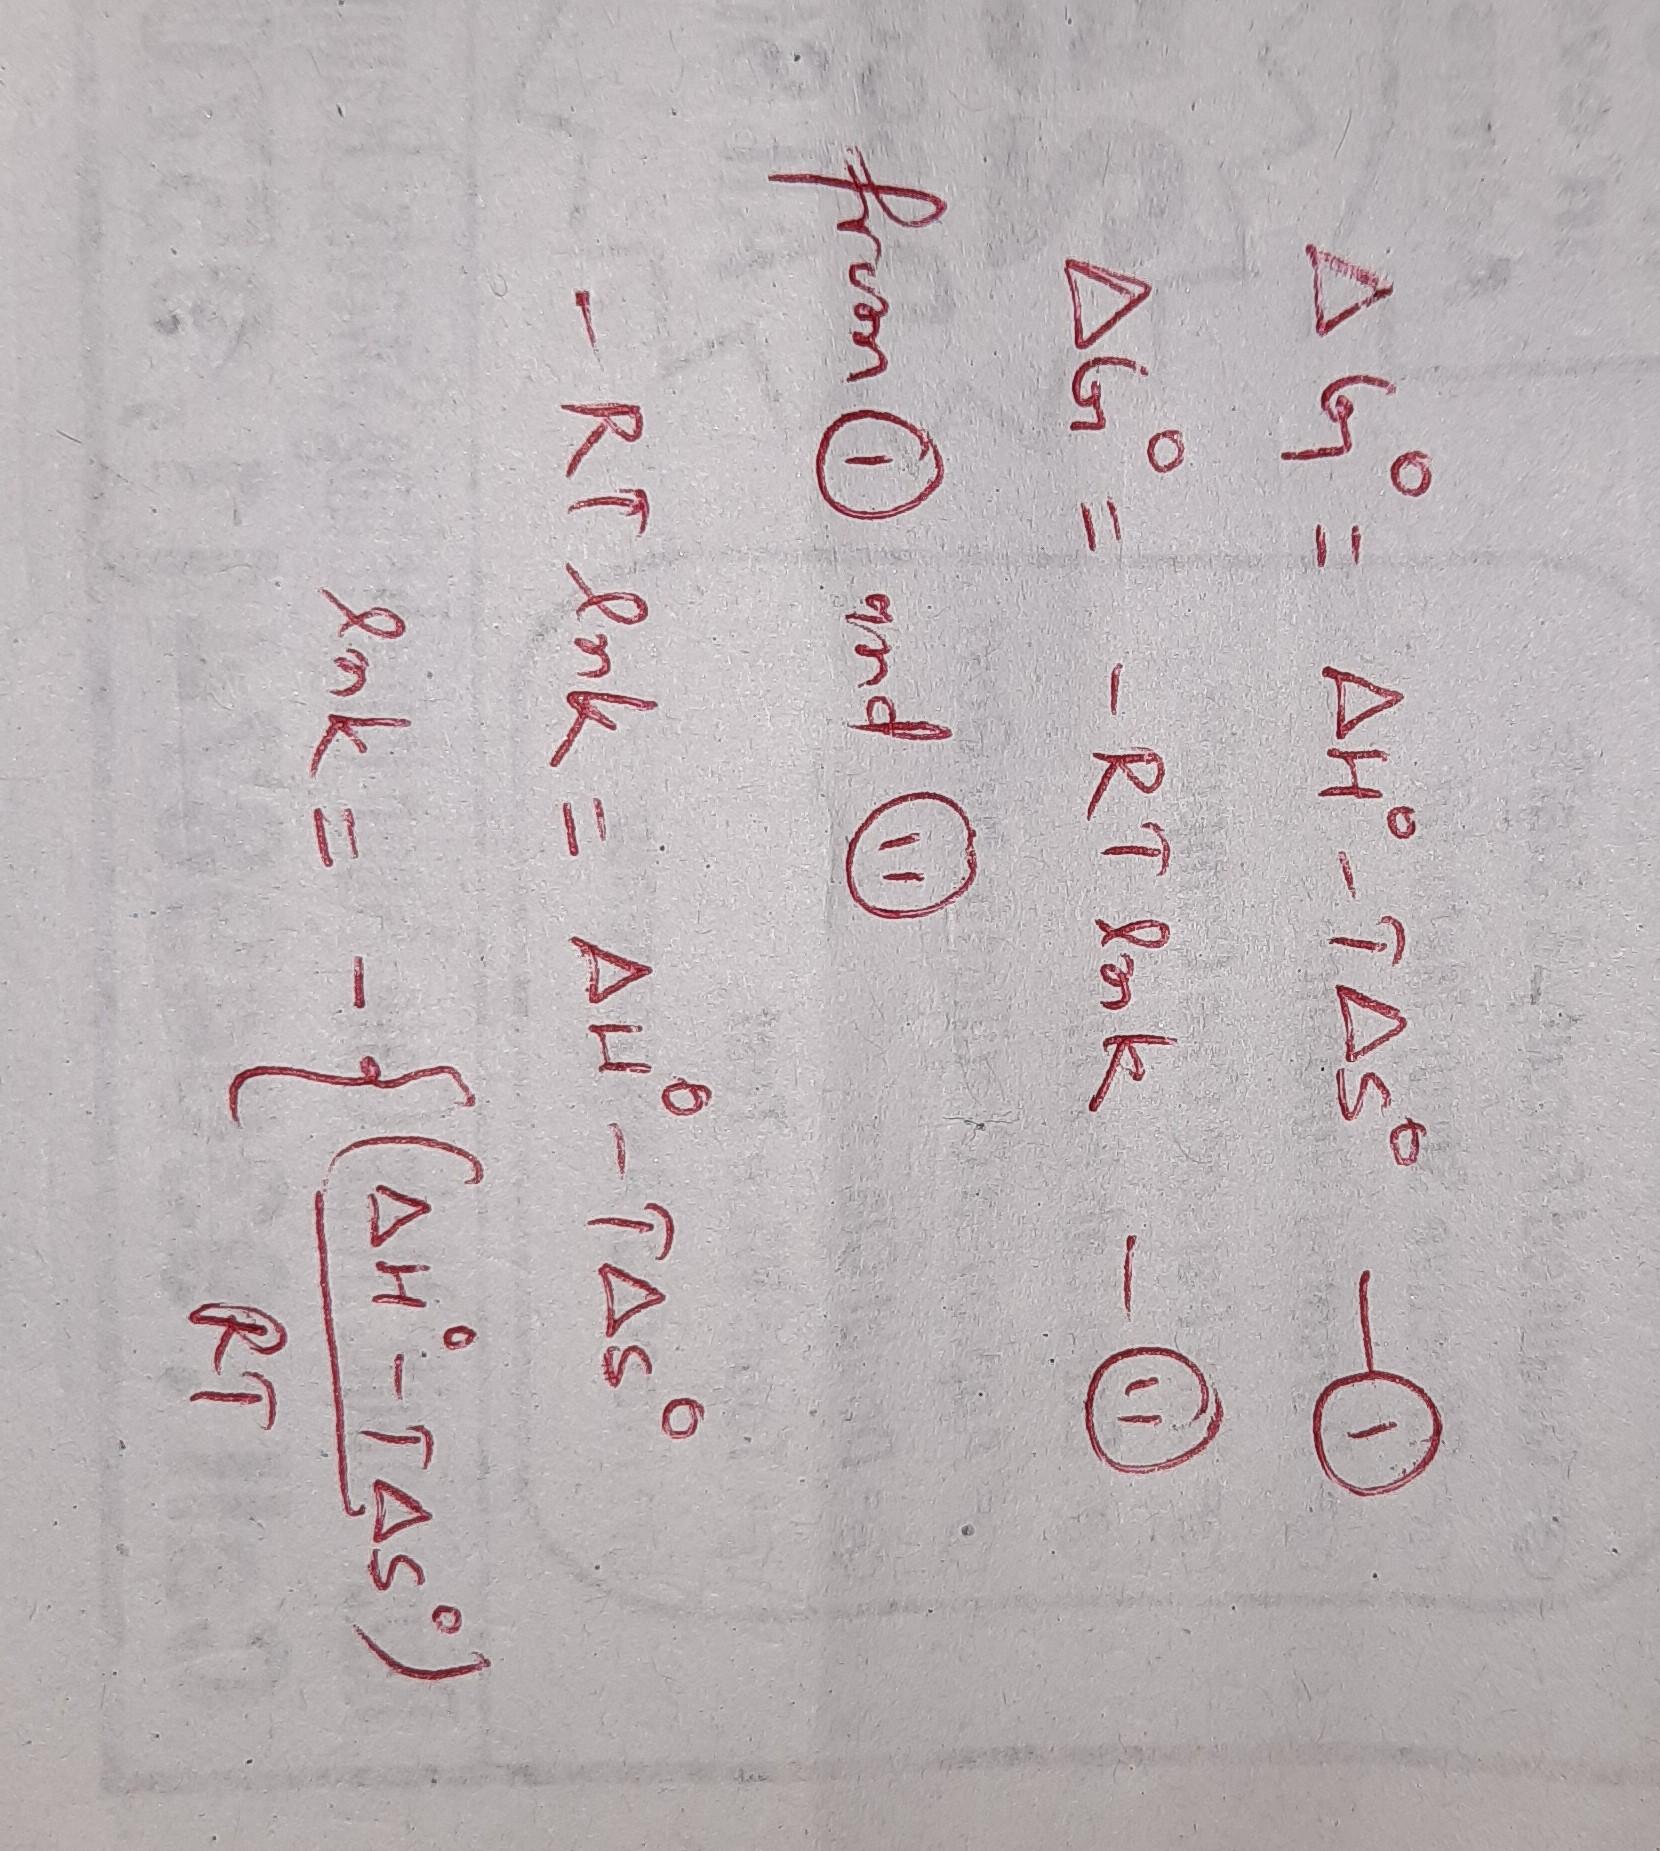 ΔG° = ΔH° - TΔS° — (I)
ΔG° = - RT lnK — (II)
from (I) and (II)
- RT lnK = ΔH° - TΔS°
lnK = - { (ΔH° - TΔS°) / RT